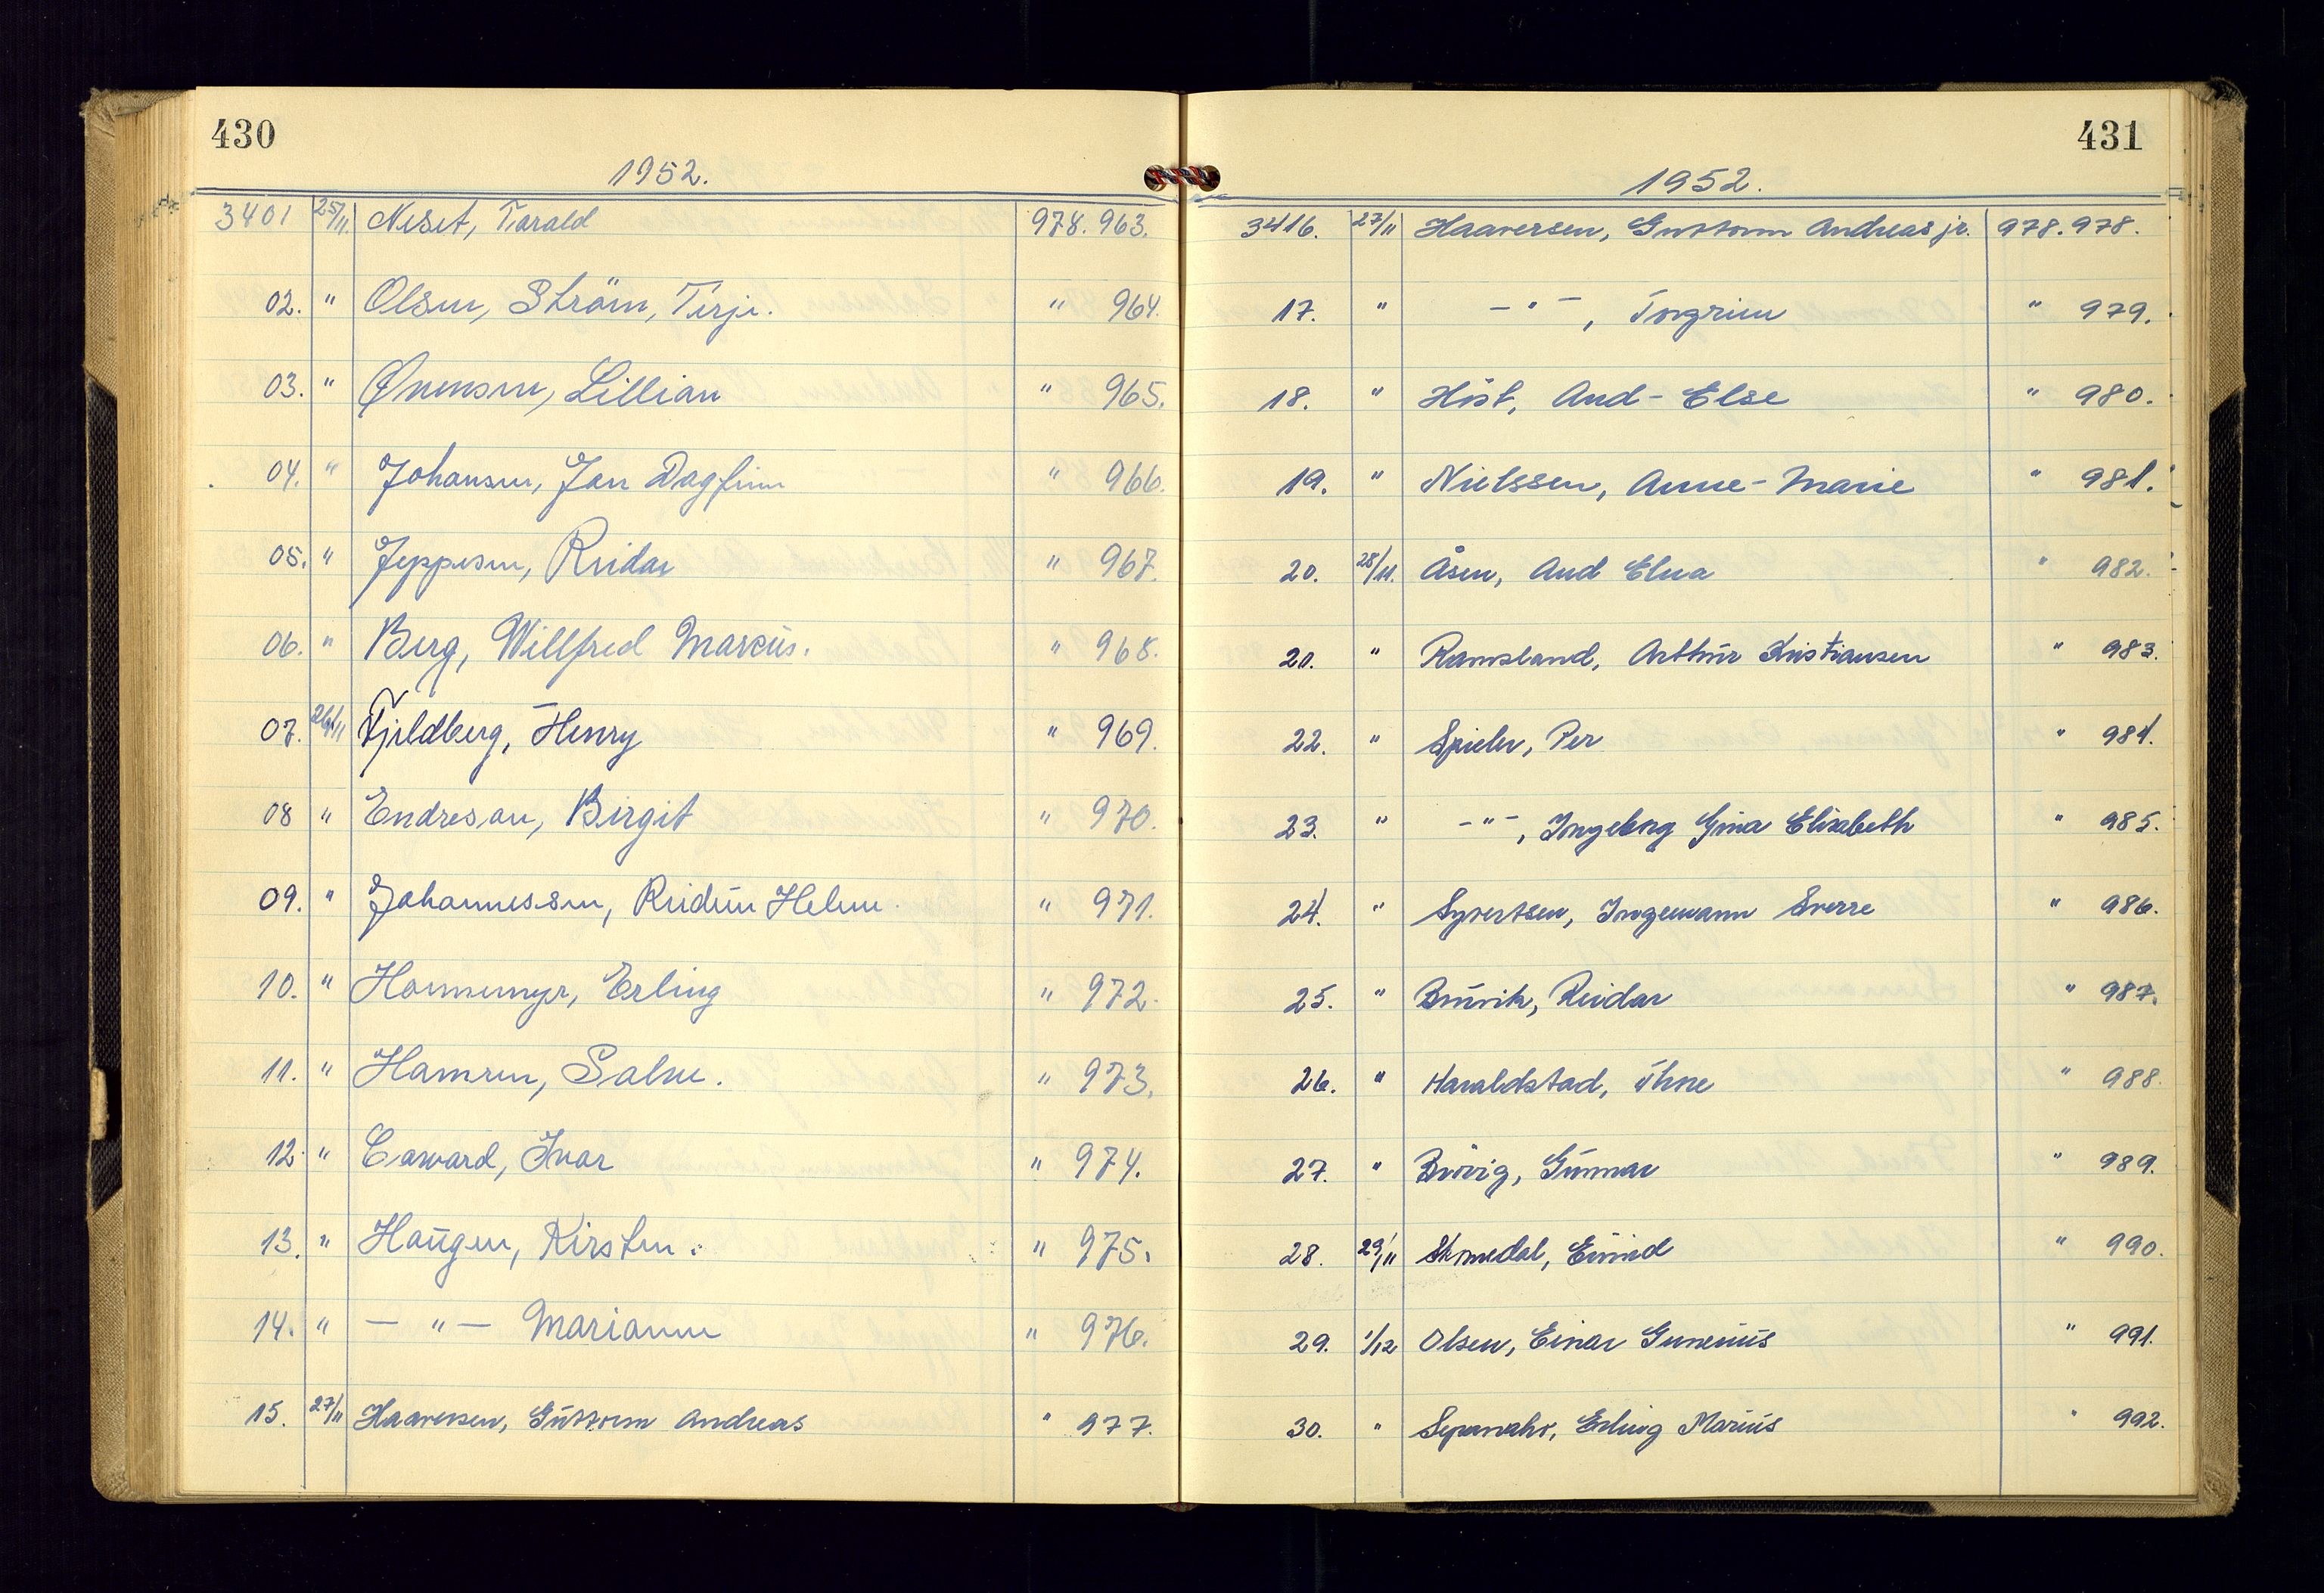 430
1952.
3401 25/11. Neset, Tarald 978.963.
02. " Olsen, Ström, Terje. " 964.
03. " Ønensen, Lillian " 965.
04. " Johansen, Jan Dagfinn " 966.
05. " Jeppesen, Reidar " 967.
06. " Berg, Willfred Marcus. " 968.
07. 26/11 Fjeldberg, Henry " 969.
08 " Endresen, Birgit " 970.
09. " Johannessen, Reidun Helene. " 971.
10. " Hommemyr, Erling " 972.
11. " Hamren, Salve. " 973.
12. " Caward, Ivar " 974.
13. " Haugen, Kirsten. " 975.
14. " — " — Marianne " 976.
15. 27/11 Haaversen, Guttorm Andreas " 977.
431
1952.
3416. 27/11 Haaversen, Guttorm Andreas jr. 978.978.
17. " — " —, Torgrim " 979.
18. " Höst, Aud-Else " 980.
19. " Nielssen, Anne-Marie " 981.
20. 28/11. Åsen, Aud Elna " 982.
20. " Ramsland, Arthur Kristiansen " 983.
22. " Spieler, Per " 984.
23. " — " —, Ingeborg Gina Elisabeth " 985.
24. " Syvertsen, Ingemann Sverre " 986.
25. " Bruvik, Reidar " 987.
26. " Haraldstad, Thore " 988.
27. " Brövig, Gunnar " 989.
28. 29/11 Skomedal, Eivind " 990.
29. 1/12 Olsen, Einar Gunerius " 991.
30. " Erling Marius " 992.